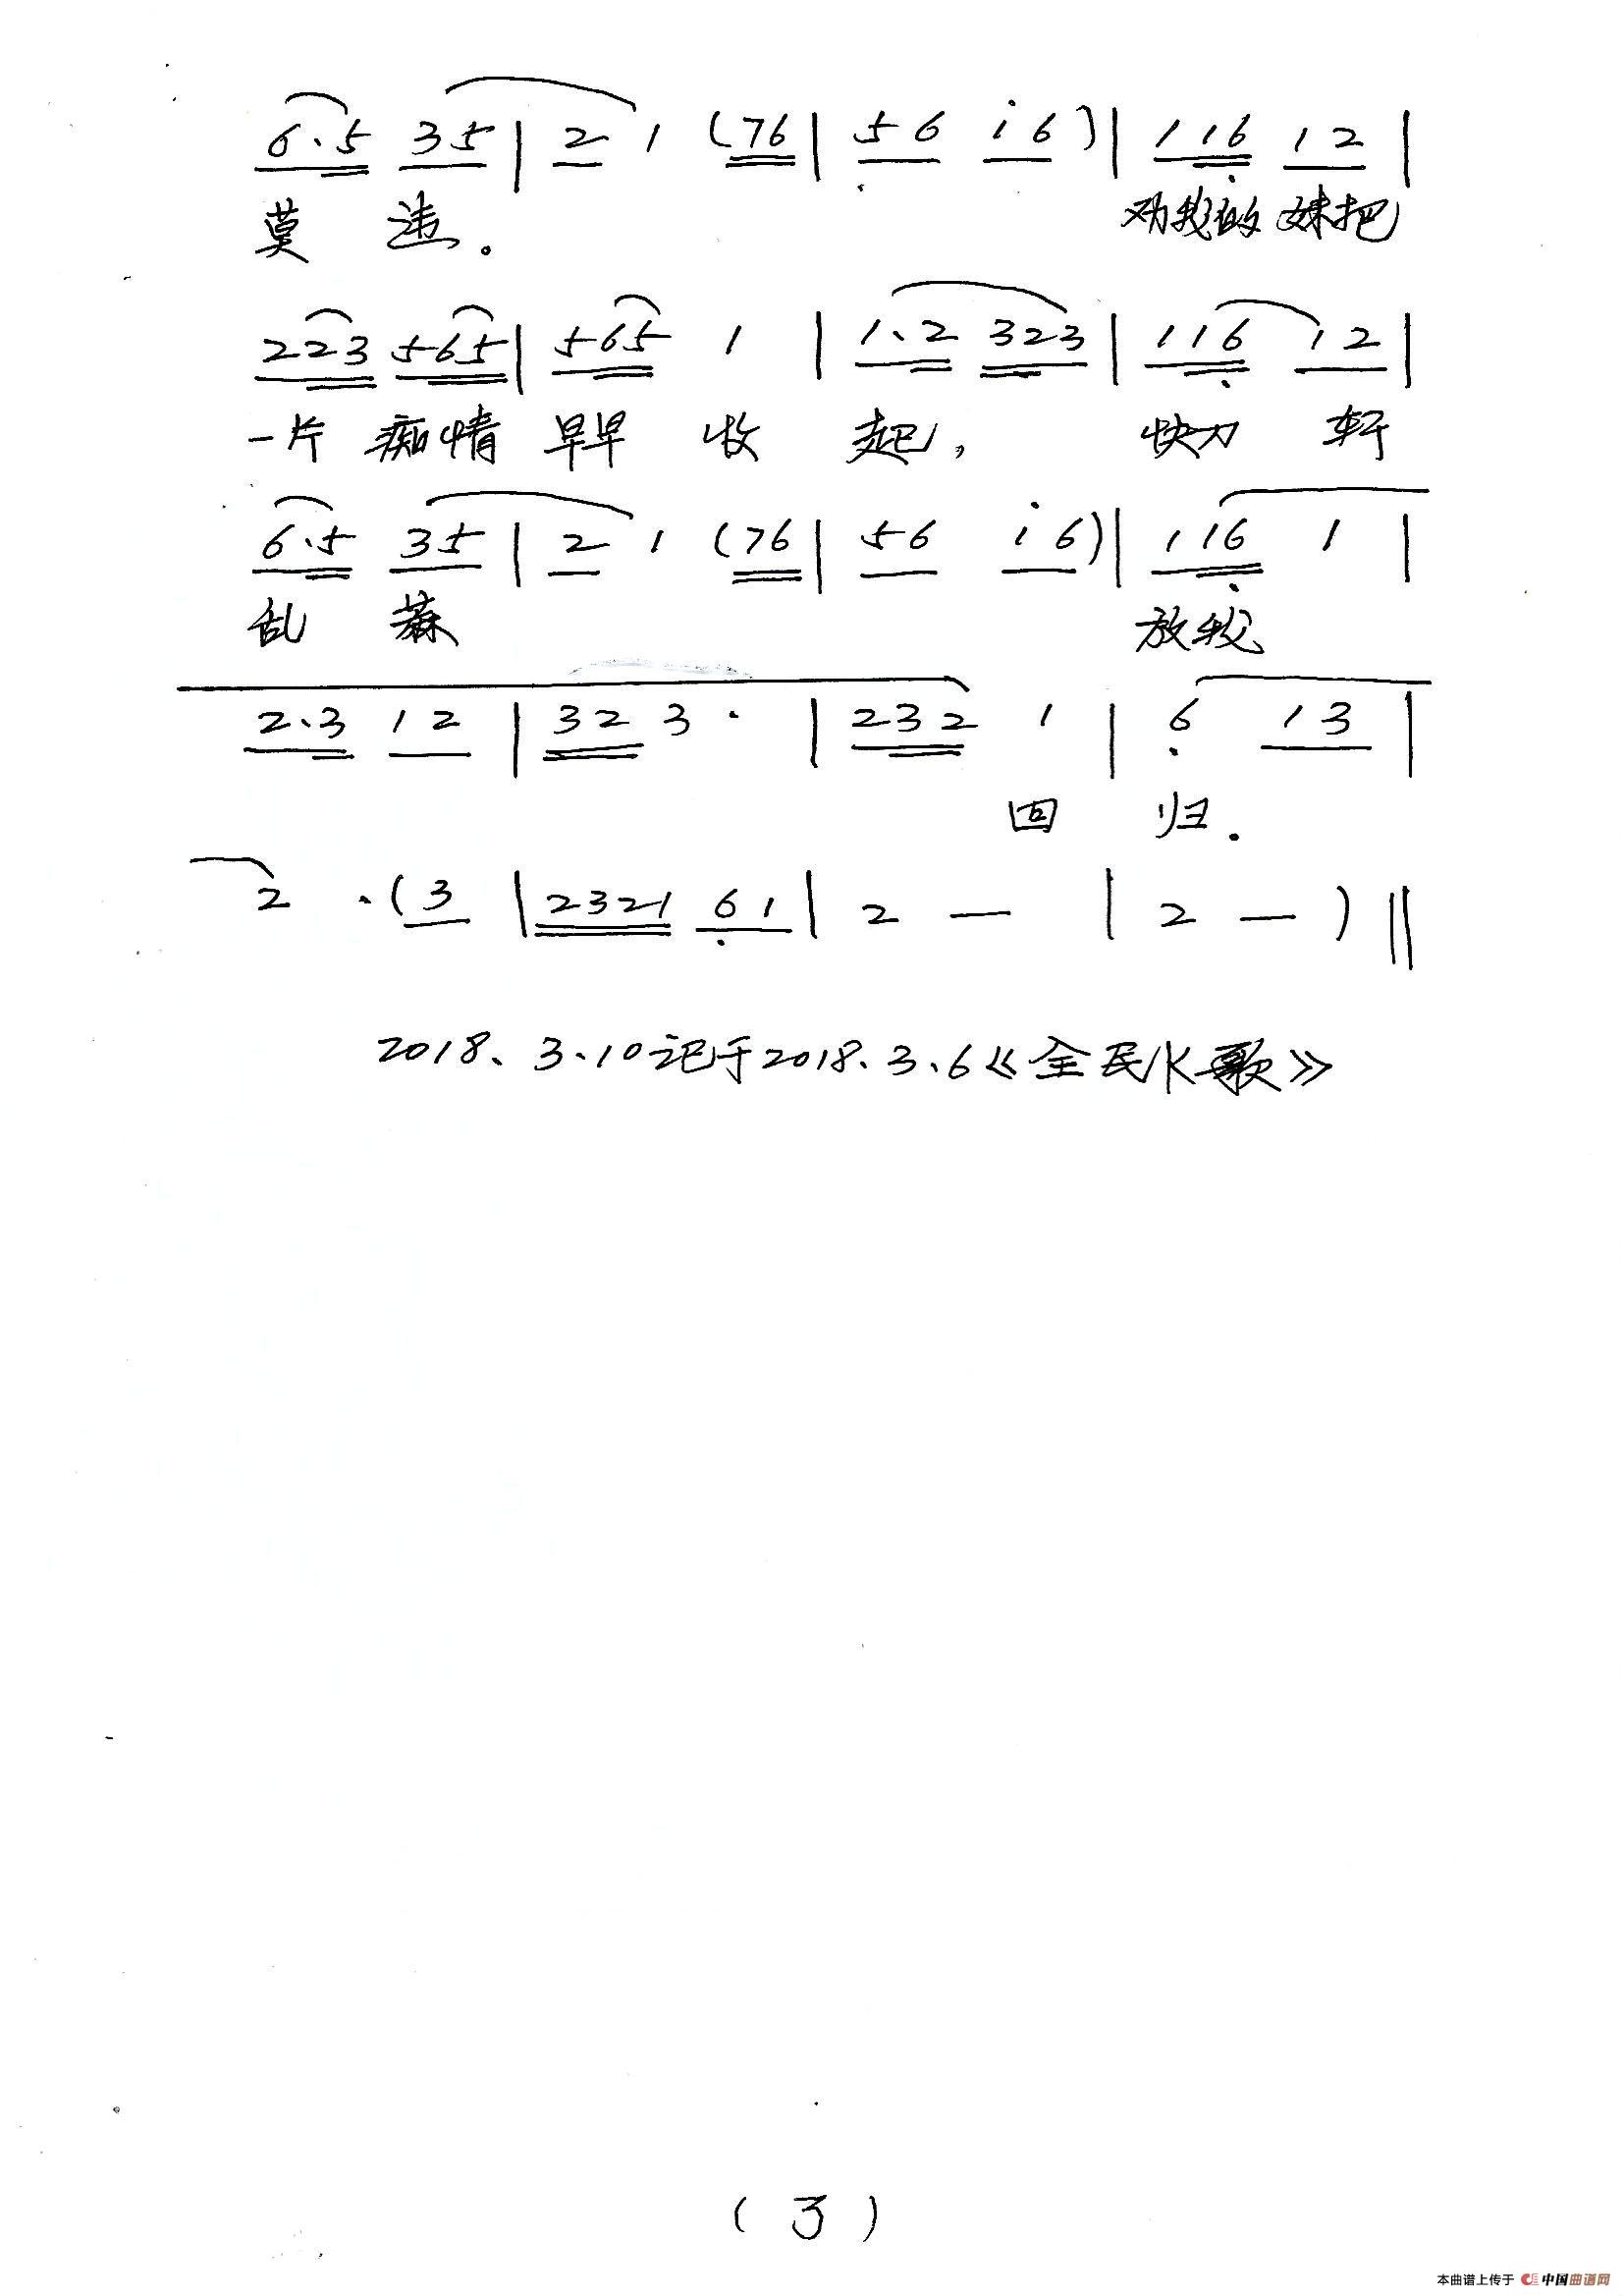 6·5 35 | 2 1 (76 | 56 i6) | 116 12 |
莫 违。 劝我的 妹把
223 565 | 565 1 | 1.2 323 | 116 12 |
一片 痴情 早早 收 起, 快刀 轩
6.5 35 | 2 1 (76 | 56 i6) | 116 1 |
乱 蔴 放我
2.3 12 | 32 3 · | 232 1 | 6 13 |
回 归.
2 ·(3 | 2321 61 | 2 — | 2 —) ||
2018、3、10记于2018、3、6《全民K歌》
(3)
本曲谱上传于 中国曲谱网